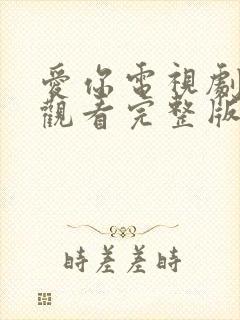 愛你電視劇
觀看完整版
時差差時